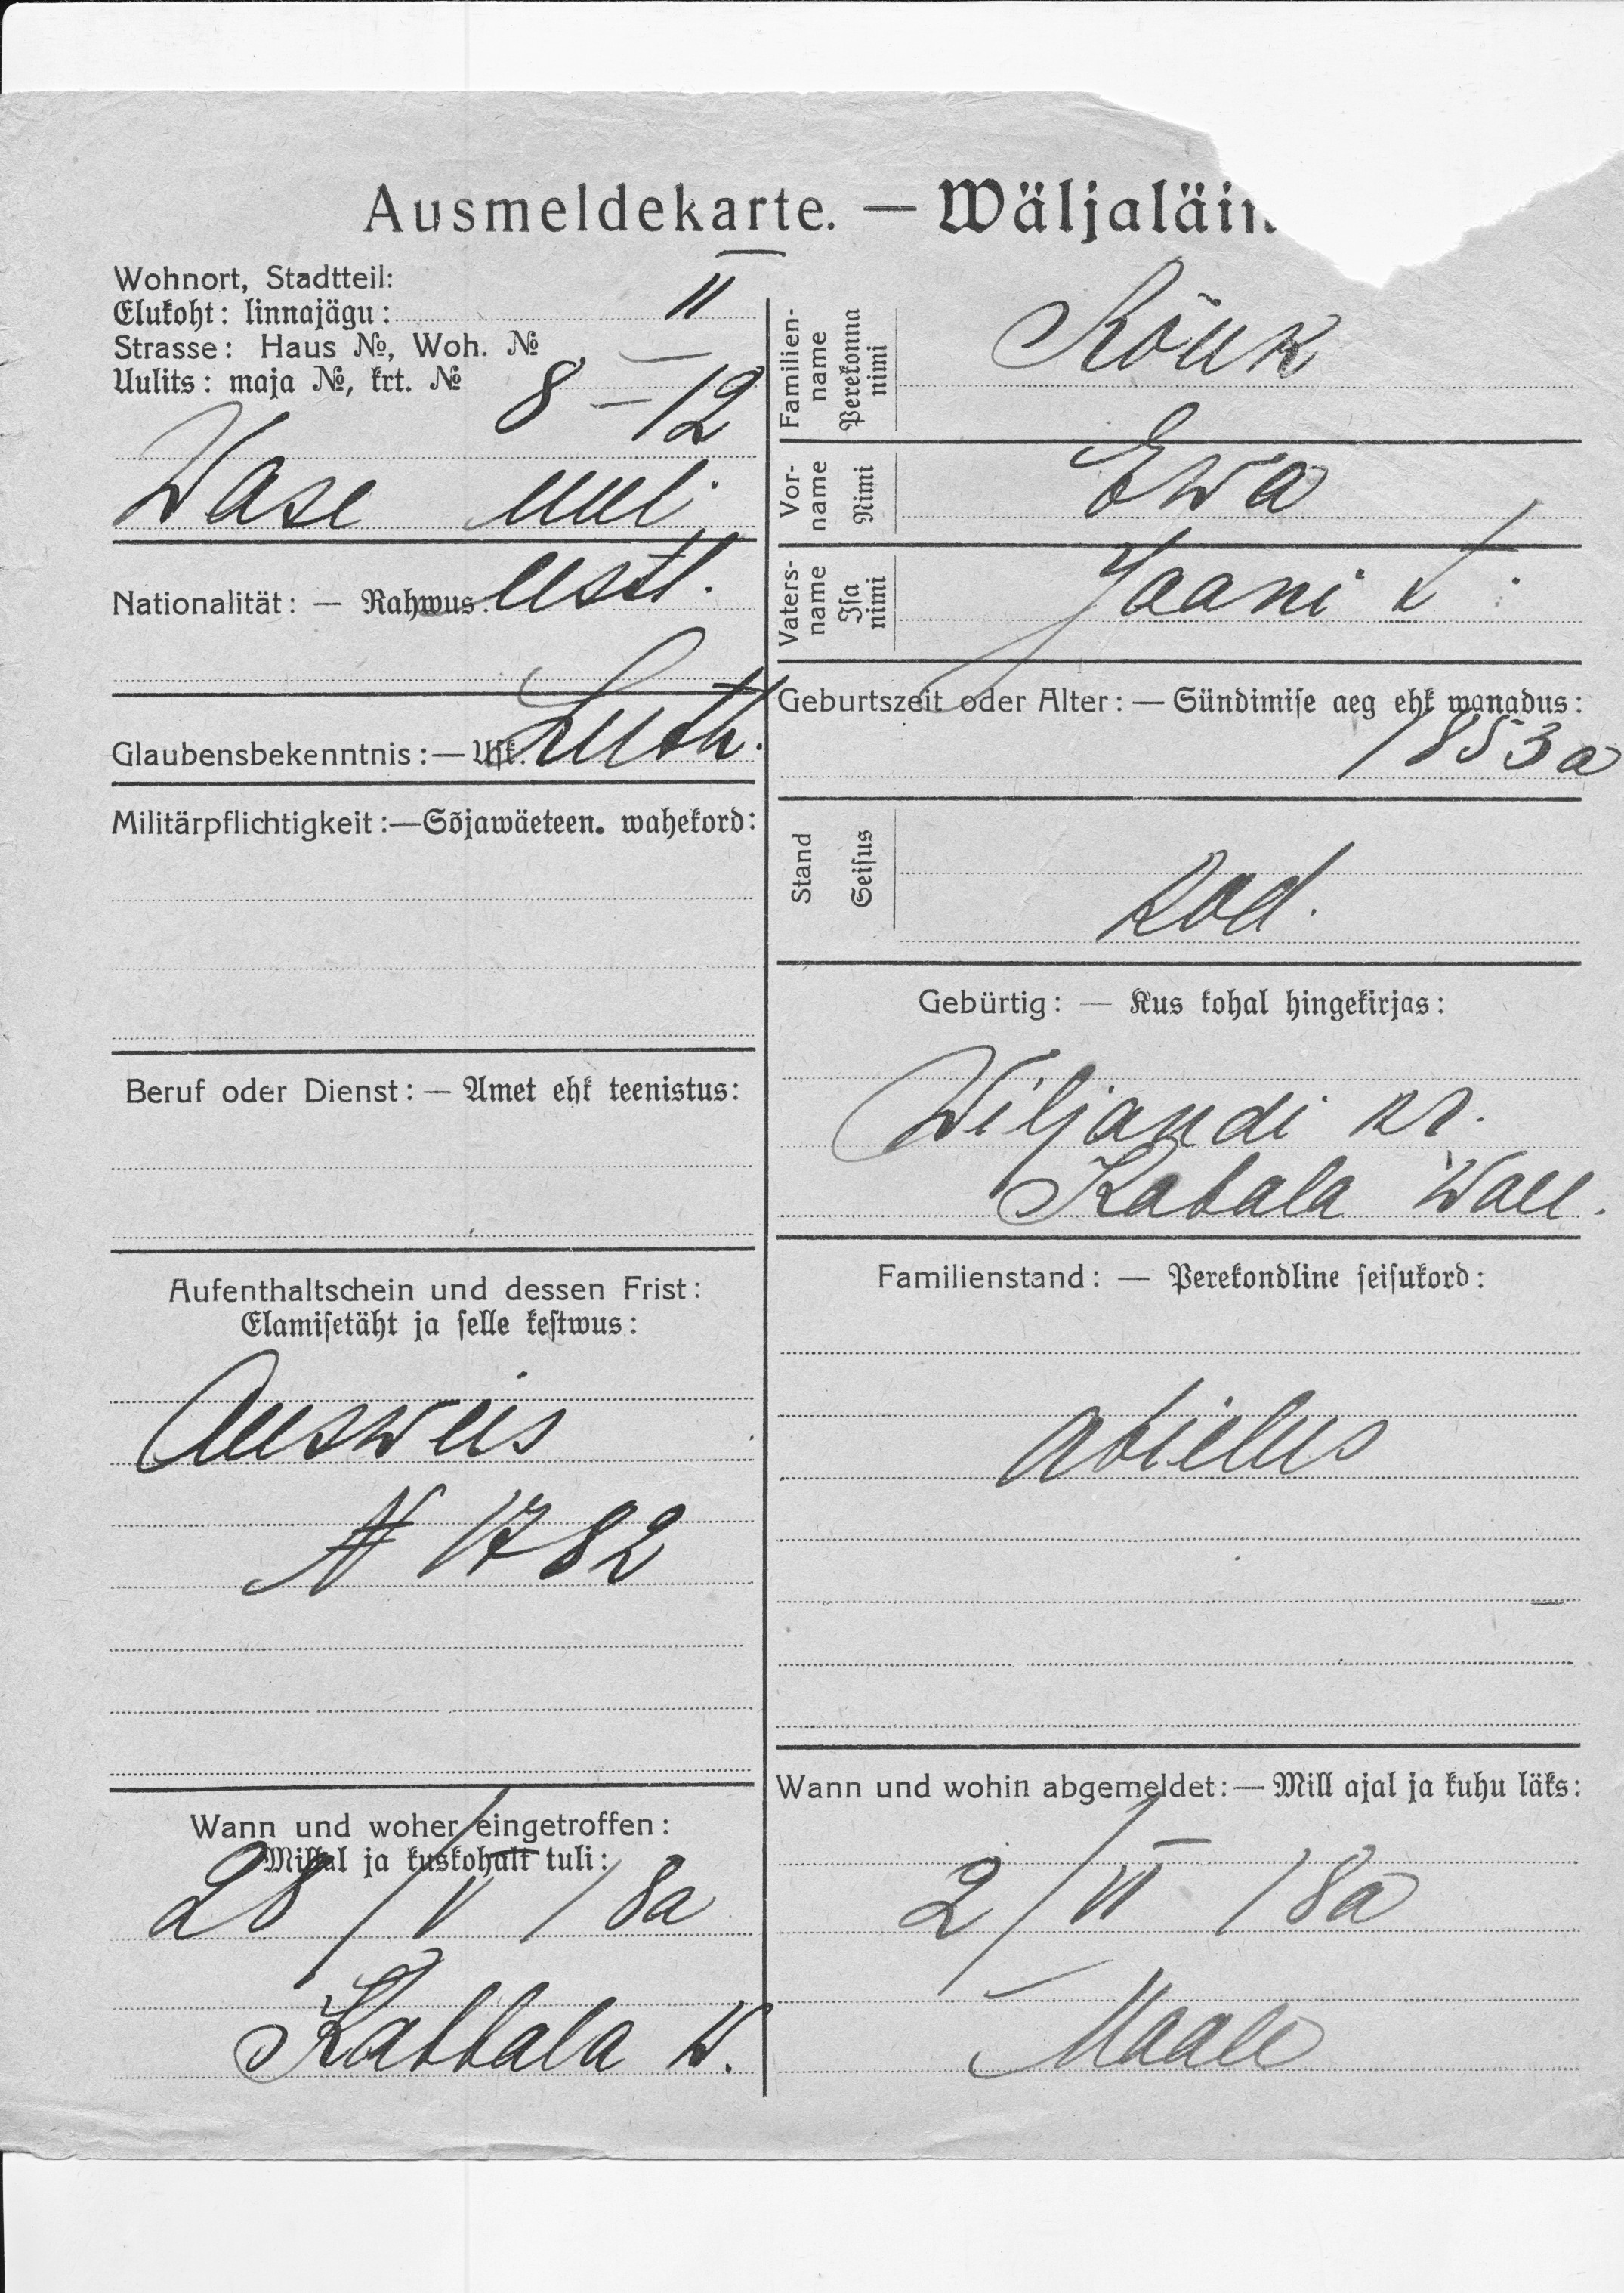 Ausmeldekarte. — Wäljaläi
Wohnort, Stadtteil:
Elukoht: linnajägu: II
Strasse: Haus №, Woh. №
Uulits: maja №, krt. № 8 — 12
Wase uul.
Nationalität: — Rahwus: eestl.
Glaubensbekenntnis: — Usk: Luth.
Militärpflichtigkeit: — Sõjawäeteen. wahekord:
Beruf oder Dienst: — Amet ehk teenistus:
Aufenthaltschein und dessen Frist:
Elamisetäht ja selle kestwus:
Ausweis
N 1782
Wann und woher eingetroffen:
Millal ja kuskohalt tuli:
28/V 18a
Kabbala W.
Familien-
name
Perekonna
nimi
Rõuk
Vor-
name
Nimi
Ewa
Vaters-
name
Isa
nimi
Jaani t.
Geburtszeit oder Alter: — Sündimise aeg ehk wanadus:
1853a
Stand
Seisus
kod.
Gebürtig: — Kus kohal hingekirjas:
Wiljandi kr.
Kabala Wall.
Familienstand: — Perekondline seisukord:
abielus
Wann und wohin abgemeldet: — Mill ajal ja kuhu läks:
2/VI 18a
Maale